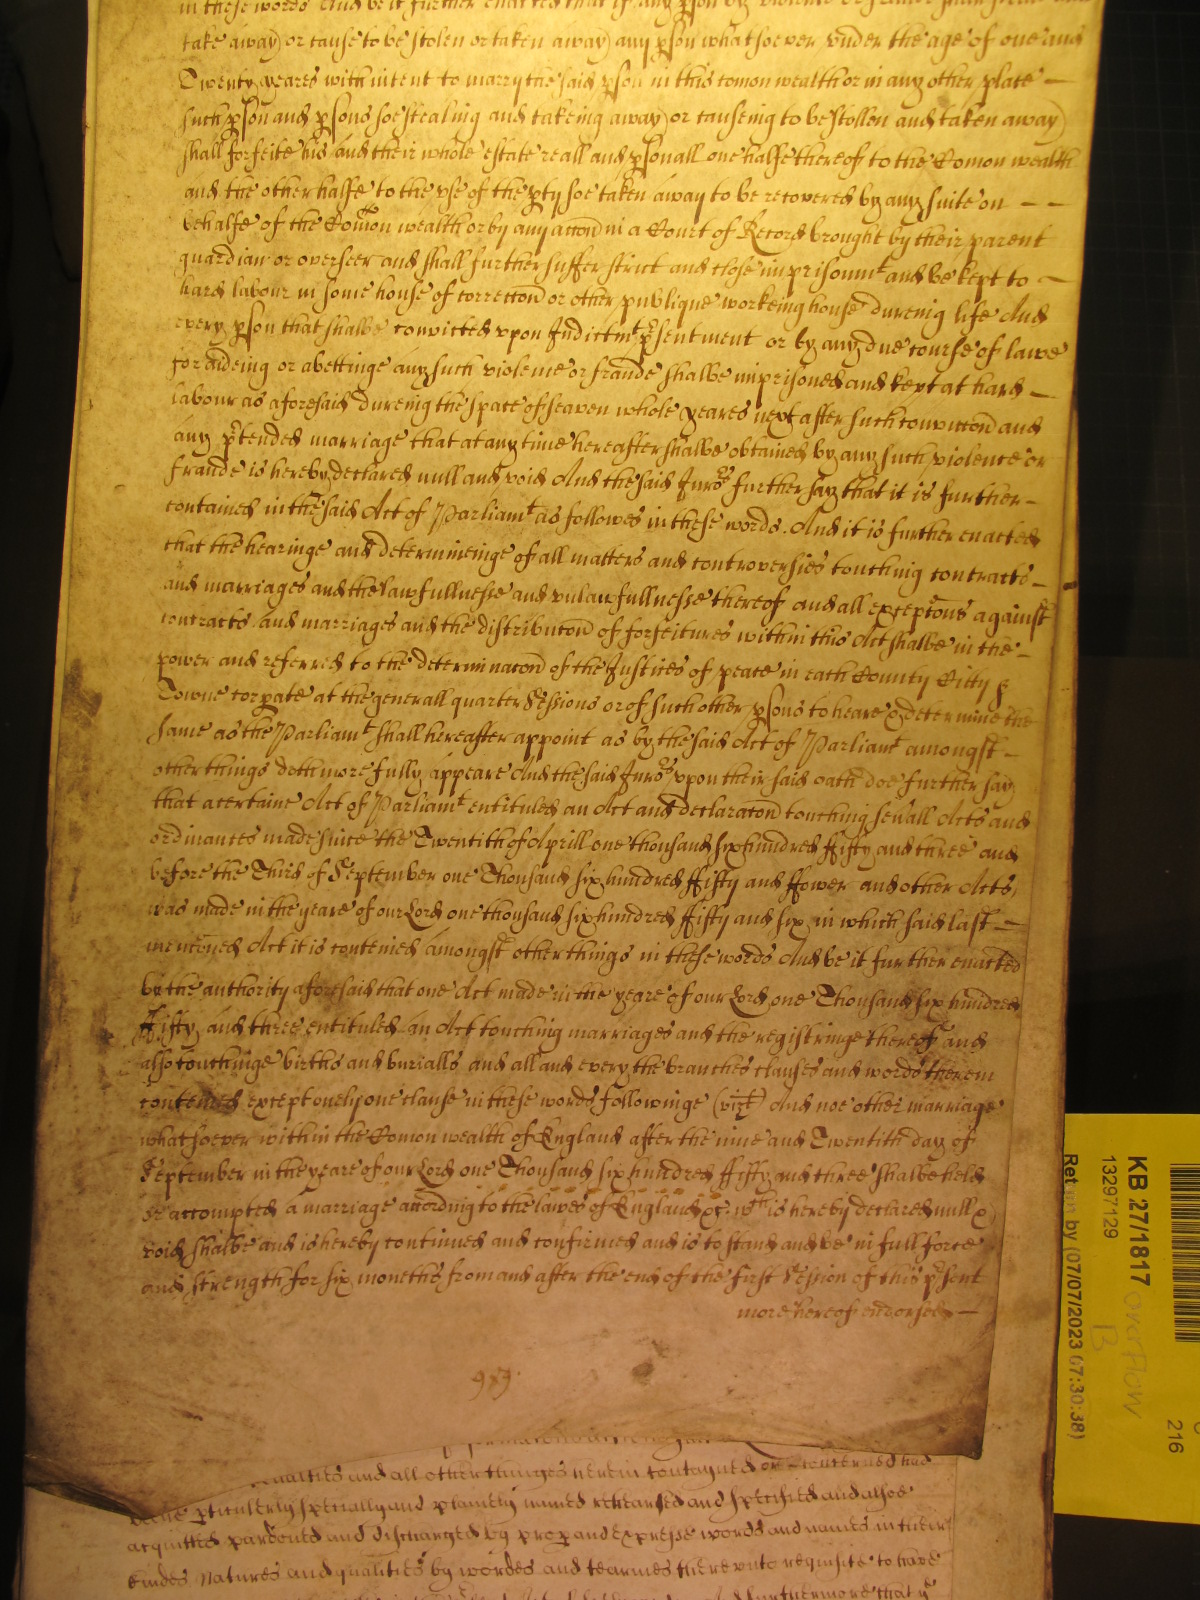 in these words And be it further enacted that if any pson by violence or fraude shall steale and
take away or cause to be stolen or taken away any pson whatsoever vnder the age of one and
Twenty yeares with intent to marry the said pson in this comon wealth or in any other place —
such pson and psons soe stealing and takeing away or causeing to be stollen and taken away
shall forfeite his and their whole estate reall and psonall one halfe thereof to the Comon wealth
and the other halfe to the vse of the pty soe taken away to be recovered by any suite on — —
behalfe of the Comon wealth or by any accon in a Court of Record brought by their parent
guardian or overseer and shall further suffer strict and close imprisonmt and be kept to —
hard labour in some house of correccon or other publique workeing house dureing life And
every pson that shalbe convicted vpon Indictmt psentment or by any due course of lawe
for aideing or abettinge any such violence or fraude shalbe imprisoned and kept at hard —
labour as aforesaid dureing the space of seaven whole yeares next after such conviccon and
any ptended marriage that at any time hereafter shalbe obtained by any such violence or
fraude is hereby declared null and void And the said Juros further say that it is further —
contained in the said Act of Parliamt as followes in these words. And it is further enacted
that the hearinge and determineinge of all matters and controversies touching contracts —
and marriages and the lawfullnesse and vnlawfullnesse thereof and all excepcons against
contracts and marriages and the distribucon of forfeitures within this Act shalbe in the —
power and referred to the determinacon of the Justices of peace in each County Citty &
Towne corpate at the generall quarter Sessions or of such other psons to heare & determine the
same as the Parliamt shall hereafter appoint as by the said Act of Parliamt amongst —
other things doth more fully appeare And the said Juros vpon their said oath doe further say
that a certaine Act of Parliamt entituled an Act and declaracon touching sevall Acts and
ordinances made since the Twentith of Aprill one thousand six hundred ffifty and three and
before the Third of September one Thousand six hundred ffifty and ffower and other Acts,
was made in the yeare of our Lord one thousand six hundred ffifty and six in which said last —
menconed Act it is conteined amongst other things in these words And be it further enacted
by the authority aforesaid that one Act made in the yeare of our Lord one Thousand six hundred
ffifty and three entituled an Act touching marriages and the registringe thereof and
also touchinge births and burialls and all and every the branches clauses and words therein
conteined except onely one clause in these words followinge (vizt) And noe other marriage
whatsoever within the Comon wealth of England after the nine and Twentith day of
September in the yeare of our Lord one Thousand six hundred ffifty and three shalbe held
or accompted a marriage according to the lawes of England &c. wch is hereby declared null &
void shalbe and is hereby continued and confirmed and is to stand and be in full force
and strength for six moneths from and after the end of the first Session of this psent
more hereof endorsed —
and all other thinges herein contayned or concerned had
pticulerly specially and plainely named rehearsed and specified and alsoe
acquitted pardoned and discharged by proper and expresse words and names in their
kindes natures and qualities by wordes and tearmes therevnto requisite to have
furthermore that ye
KB 27/1817
overflow
B
13297129
Return by (07/07/2023 07:30:38)
216